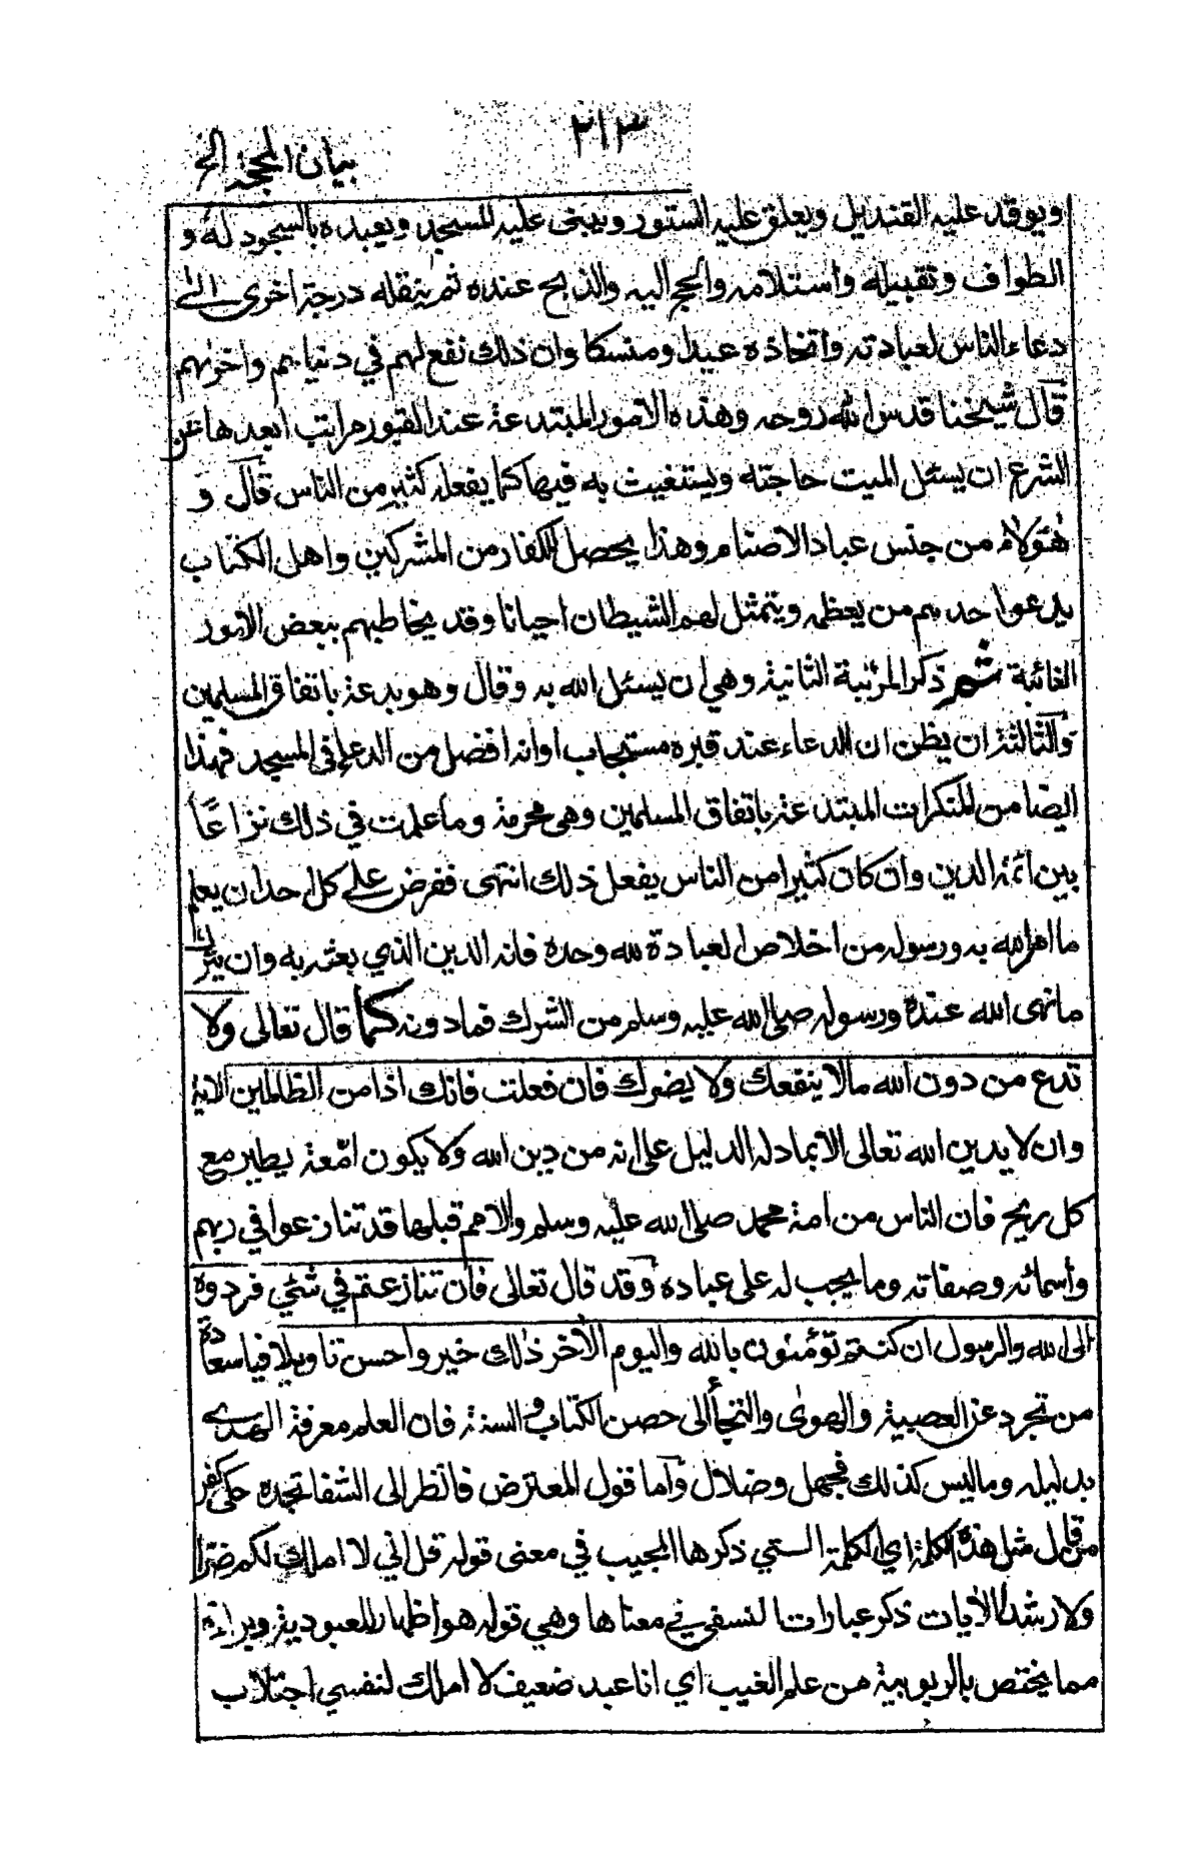 ٢١٣
بيان المحجة الخ
ويوقد عليه القنديل ويعلق عليه الستور ويبنى عليه المسجد ويعبده بالسجود له و
الطواف وتقبيله واستلامه والحج اليه والذبح عنده ثم ينقله درجة اخرى الى
دعاء الناس لعبادته واتخاذه عيدا ومنسكا وان ذلك نفع لهم في دنياهم واخرٰىهم
قال شيخنا قدس الله روحه وهذه الامور المبتدعة عند القبور مراتب ابعدها عن
الشرع ان يسئل الميت حاجته ويستغيث به فيها كما يفعله كثير من الناس قال و
هٰؤلاء من جنس عباد الاصنام وهذا يحصل للكفار من المشركين واهل الكتاب
يدعو احدهم من يعظمه ويتمثل لهم الشيطان احيانا وقد يخاطبهم ببعض الامور
الغائبة ثم ذكر المرتبة الثانية وهي ان يسئل الله به وقال وهو بدعة باتفاق المسلمين
والثالثة ان يظن ان الدعاء عند قبره مستجاب او انه افضل من الدعاء في المسجد فهذا
ايضا من المنكرات المبتدعة باتفاق المسلمين وهي محرمة وما علمت في ذلك نزاعًا
بين ائمة الدين وان كان كثيرا من الناس يفعل ذلك انتهى ففرض على كل احد ان يعلم
ما امر الله به ورسوله من اخلاص العبادة لله وحده فانه الدين الذي بعثه به وان يترك
ما نهى الله عنه ورسوله صلى الله عليه وسلم من الشرك فمادونه كما قال تعالى ولا
تدع من دون الله مالا ينفعك ولا يضرك فان فعلت فانك اذا من الظالمين الاية
وان لا يدين الله تعالى الا بما دله الدليل على انه من دين الله ولا يكون امّعة يطير مع
كل ريح فان الناس من امة محمد صلى الله عليه وسلم والامم قبلها قد تنازعوا في ربهم
وأسمائه وصفاته وما يجب له على عباده وقد قال تعالى فان تنازعتم في شئي فردوه
الى الله والرسول ان كنتم تؤمنون بالله واليوم الأخر ذلك خير واحسن تاويلا فيا سعادة
من تجرد عن العصبية والهوىٰ والتجأ الى حصن الكتاب والسنة فان العلم معرفة الهدى
بدليله وما ليس كذلك فجهل وضلال وأما قول المعترض فانظر الى الشفا تجده حكى كفر
من قال مثل هذه الكلمة اي الكلمة التي ذكرها المجيب في معنى قوله قل اني لا املك لكم ضرا
ولا رشدا الأيات ذكر عبارات النسفي في معناها وهي قوله هو اظهار للعبودية وبراءة
مما يختص بالربوبية من علم الغيب اي انا عبد ضعيف لا املك لنفسي اجتلاب